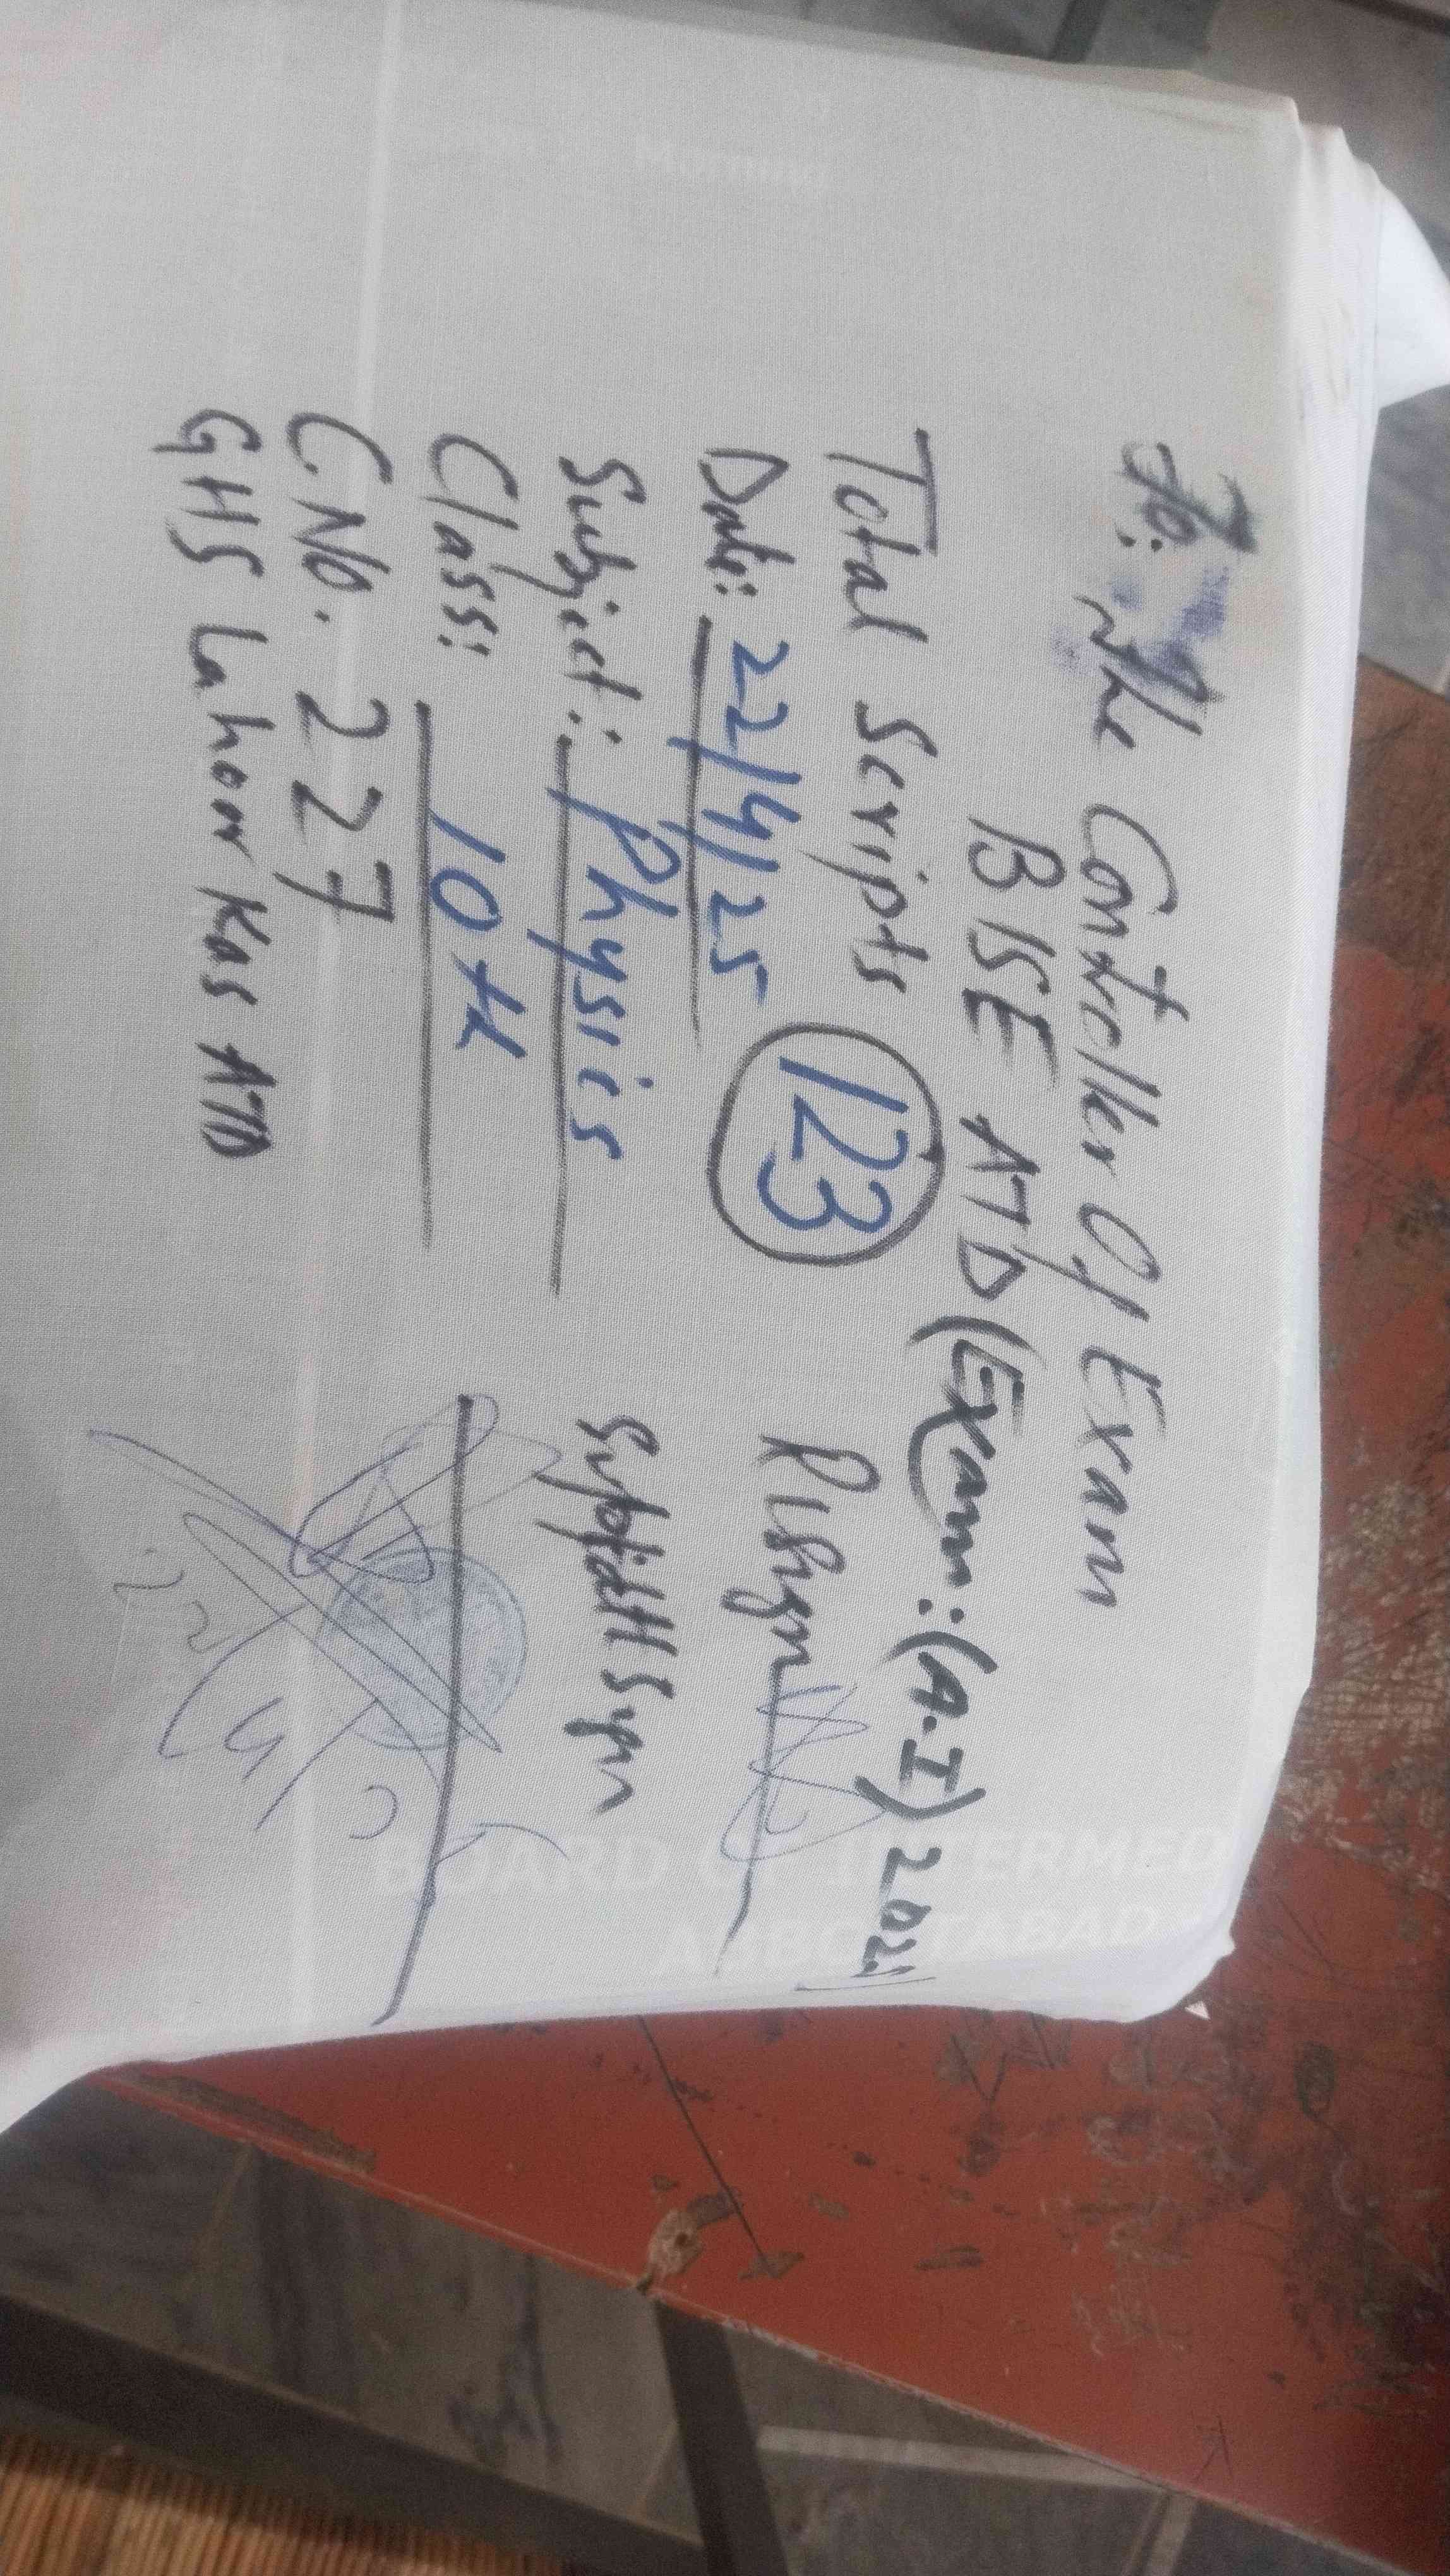 To: The Controller Of Exam
BISE ATD (Exam: (A.I) 202
Total Scripts 123
Date: 22/4/25
Subject: Physics
Class: 10th
C No. 227
GHS Lahoor Kas ATD
R I Sign
Supdtt Sign
BOARD OF INTERMED
ABBOTTABAD